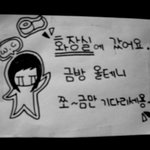 화장실에 갔어요.
금방 올테니
쪼~금만 기다리세용